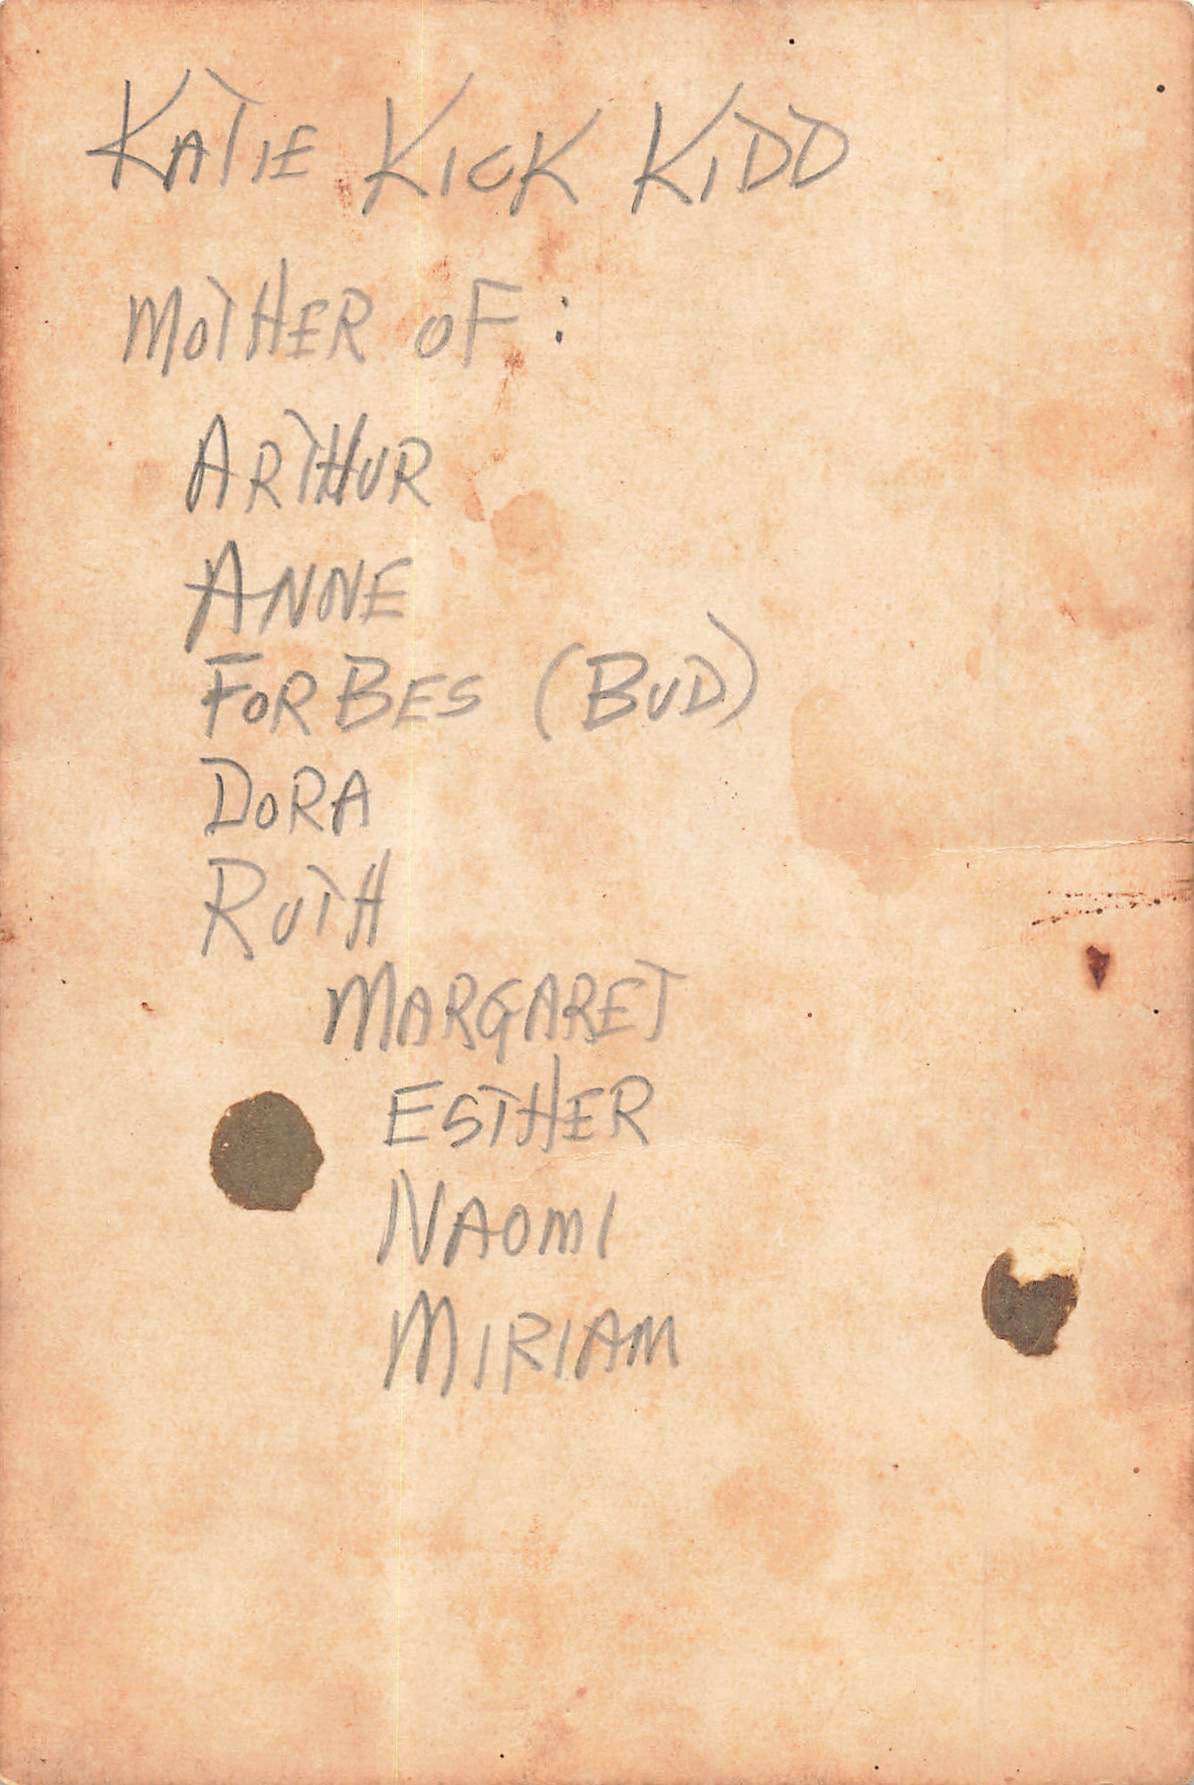 KATIE KICK KIDD
MOTHER OF:
ARTHUR
ANNE
FORBES (BUD)
DORA
RUTH
MARGARET
ESTHER
NAOMI
MIRIAM